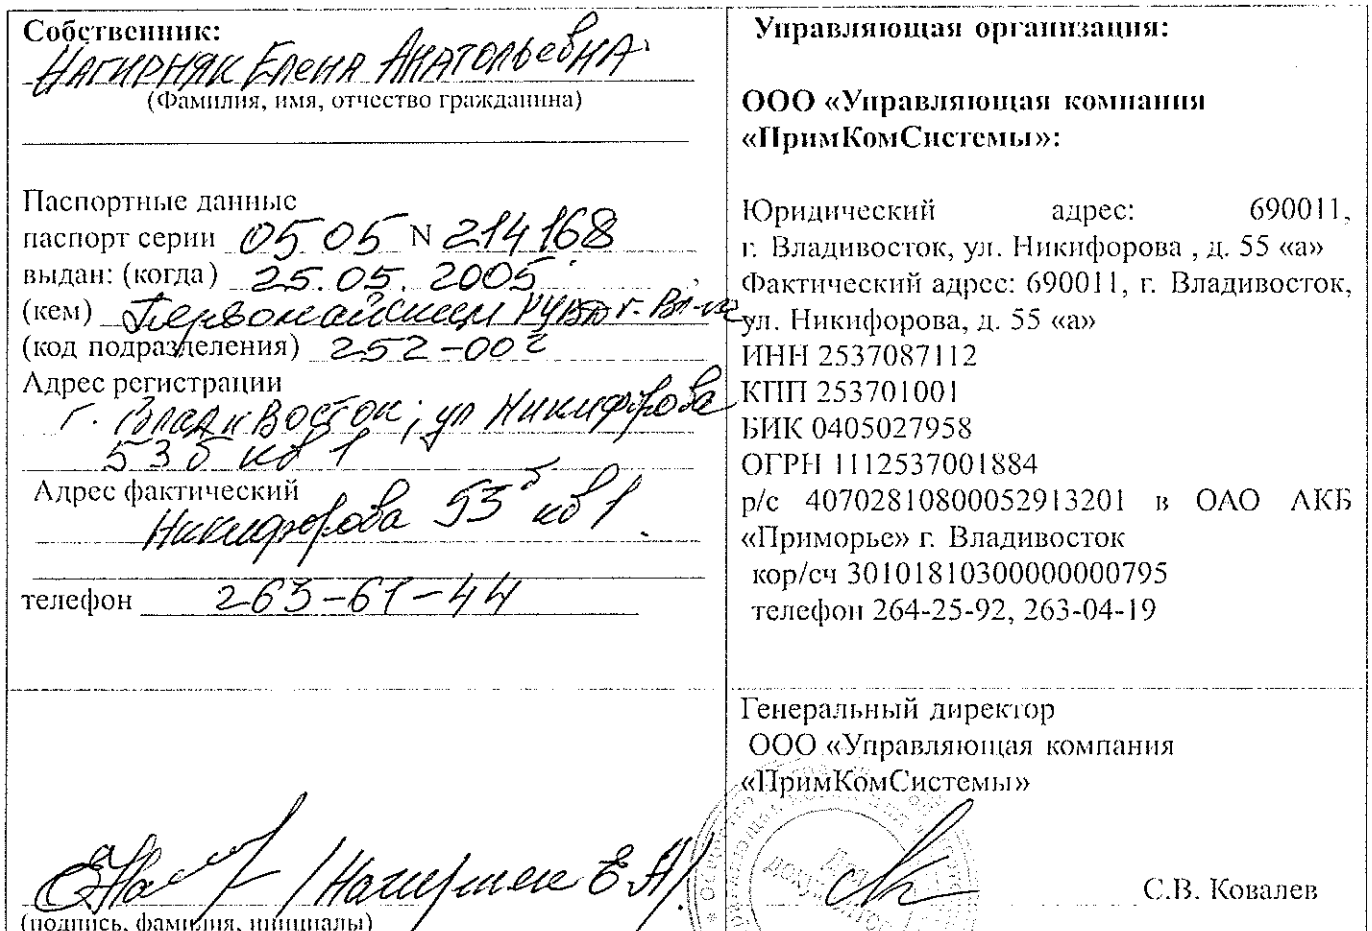 Собственник:
Нагирняк Елена Анатольевна
(Фамилия, имя, отчество гражданина)
Паспортные данные
паспорт серии 05 05 N 214168
выдан: (когда) 25.05.2005
(кем) Первомайским РУВД г. Вл-ка
(код подразделения) 252-002
Адрес регистрации
г. Владивосток; ул Никифорова
53б кв 1
Адрес фактический
Никифорова 53б кв 1.
телефон 263-61-44
(подпись, фамилия, инициалы)
Управляющая организация:
ООО «Управляющая компания
«ПримКомСистемы»:
Юридический адрес: 690011,
г. Владивосток, ул. Никифорова , д. 55 «а»
Фактический адрес: 690011, г. Владивосток,
ул. Никифорова, д. 55 «а»
ИНН 2537087112
КПП 253701001
БИК 0405027958
ОГРН 1112537001884
р/с 40702810800052913201 в ОАО АКБ
«Приморье» г. Владивосток
кор/сч 30101810300000000795
телефон 264-25-92, 263-04-19
Генеральный директор
ООО «Управляющая компания
«ПримКомСистемы»
С.В. Ковалев